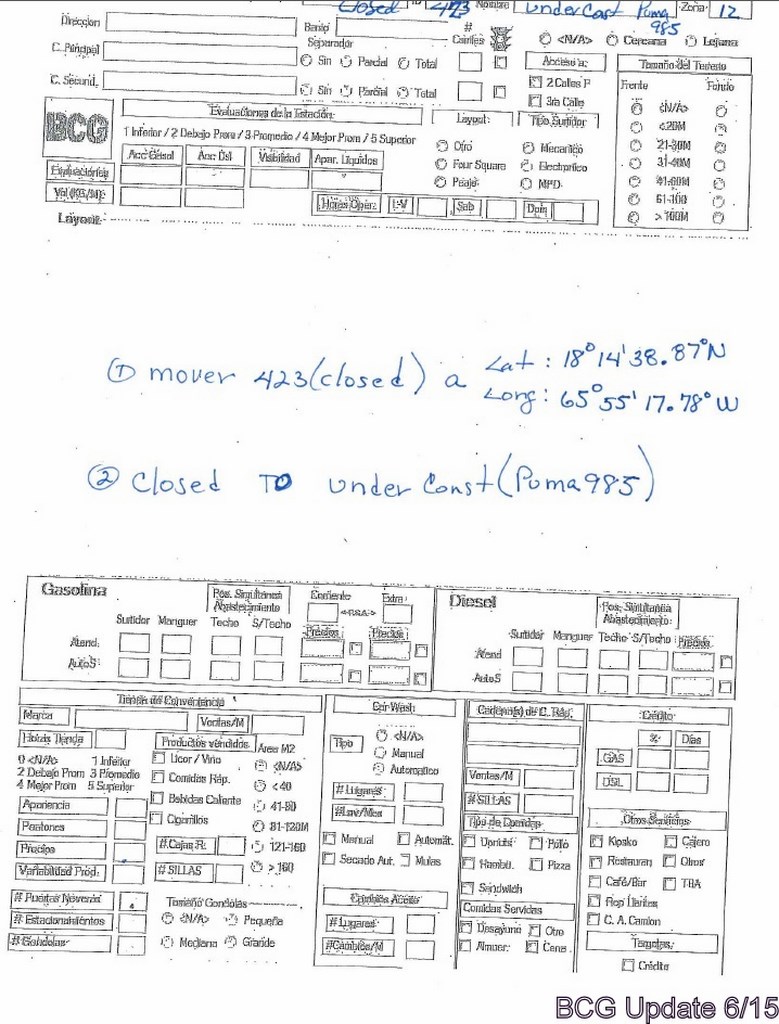 closed 423 Nombre Under Const Puma Zona: 12
985
Dirección Banio # <N/A> Cercana Lejana
Separador Carriles
C. Principal Sin Parcial Total Acceso a: Tamaño del Terreno
2 Calles P Frente Fondo
C. Secund. Sin Parcial Total 3ra Calle <N/A>
Evaluaciones de la Estación: Layout: Tipo Surtidor <20M
BCG 1 Inferior / 2 Debajo Prom / 3 Promedio / 4 Mejor Prom / 5 Superior Otro Mecanico 21-30M
Acc Gasol Acc Dsl Visibilidad Apar. Liquidos Four Square Electronico 31-40M
Evaluaciones Peaje MPD 41-60M
Horas Oper. L-V Sab Dom 61-100
Layout: > 100M
① mover 423(closed) a Lat: 18°14'38.87"N
Long: 65°55'17.78"W
② closed TO under Const (Puma985)
Gasolina Pos. Simultanea Corriente Extra: Diesel Pos. Simultanea
Abastecimiento Abastecimiento
Surtidor Manguer Techo S/Techo Precios Precios Surtidor Manguer Techo S/Techo Precios
Atend: Atend
AutoS: AutoS
Tienda de Conveniencia Car Wash Cadena(s) de C. Ráp. Crédito
Marca Ventas/M <N/A> % Dias
Horas Tienda Productos vendidos Área M2 Tipo Manual GAS
0 <N/A> 1 Inferior Licor / Vino <N/A> Automatico Ventas/M DSL
2 Debajo Prom 3 Promedio Comidas Ráp. < 40 # Lugares # SILLAS
4 Mejor Prom 5 Superior Bebidas Caliente 41-80 # Lav/Mes Tipo de Comidas Otros Servicios
Apariencia Cigarrillos 81-120M Manual Automát. Pollo Kiosko Cajero
Peatones # Cajas R: 121-160 Secado Aut. Mulas Hambu. Pizza Restauran Otros
Precios # SILLAS > 160 Sandwich Café/Bar TBA
Variabilidad Prod: Cambio Aceite Comidas Servidas Rep Llantas
# Puertas Neveras Tamaño Gondolas # Lugares Desayuno Otro C. A. Camion
# Estacionamientos <N/A> Pequeña # Cambios/M Almuer. Cena Tarjetas:
# Gondolas Mediana Grande Crédito
BCG Update 6/15